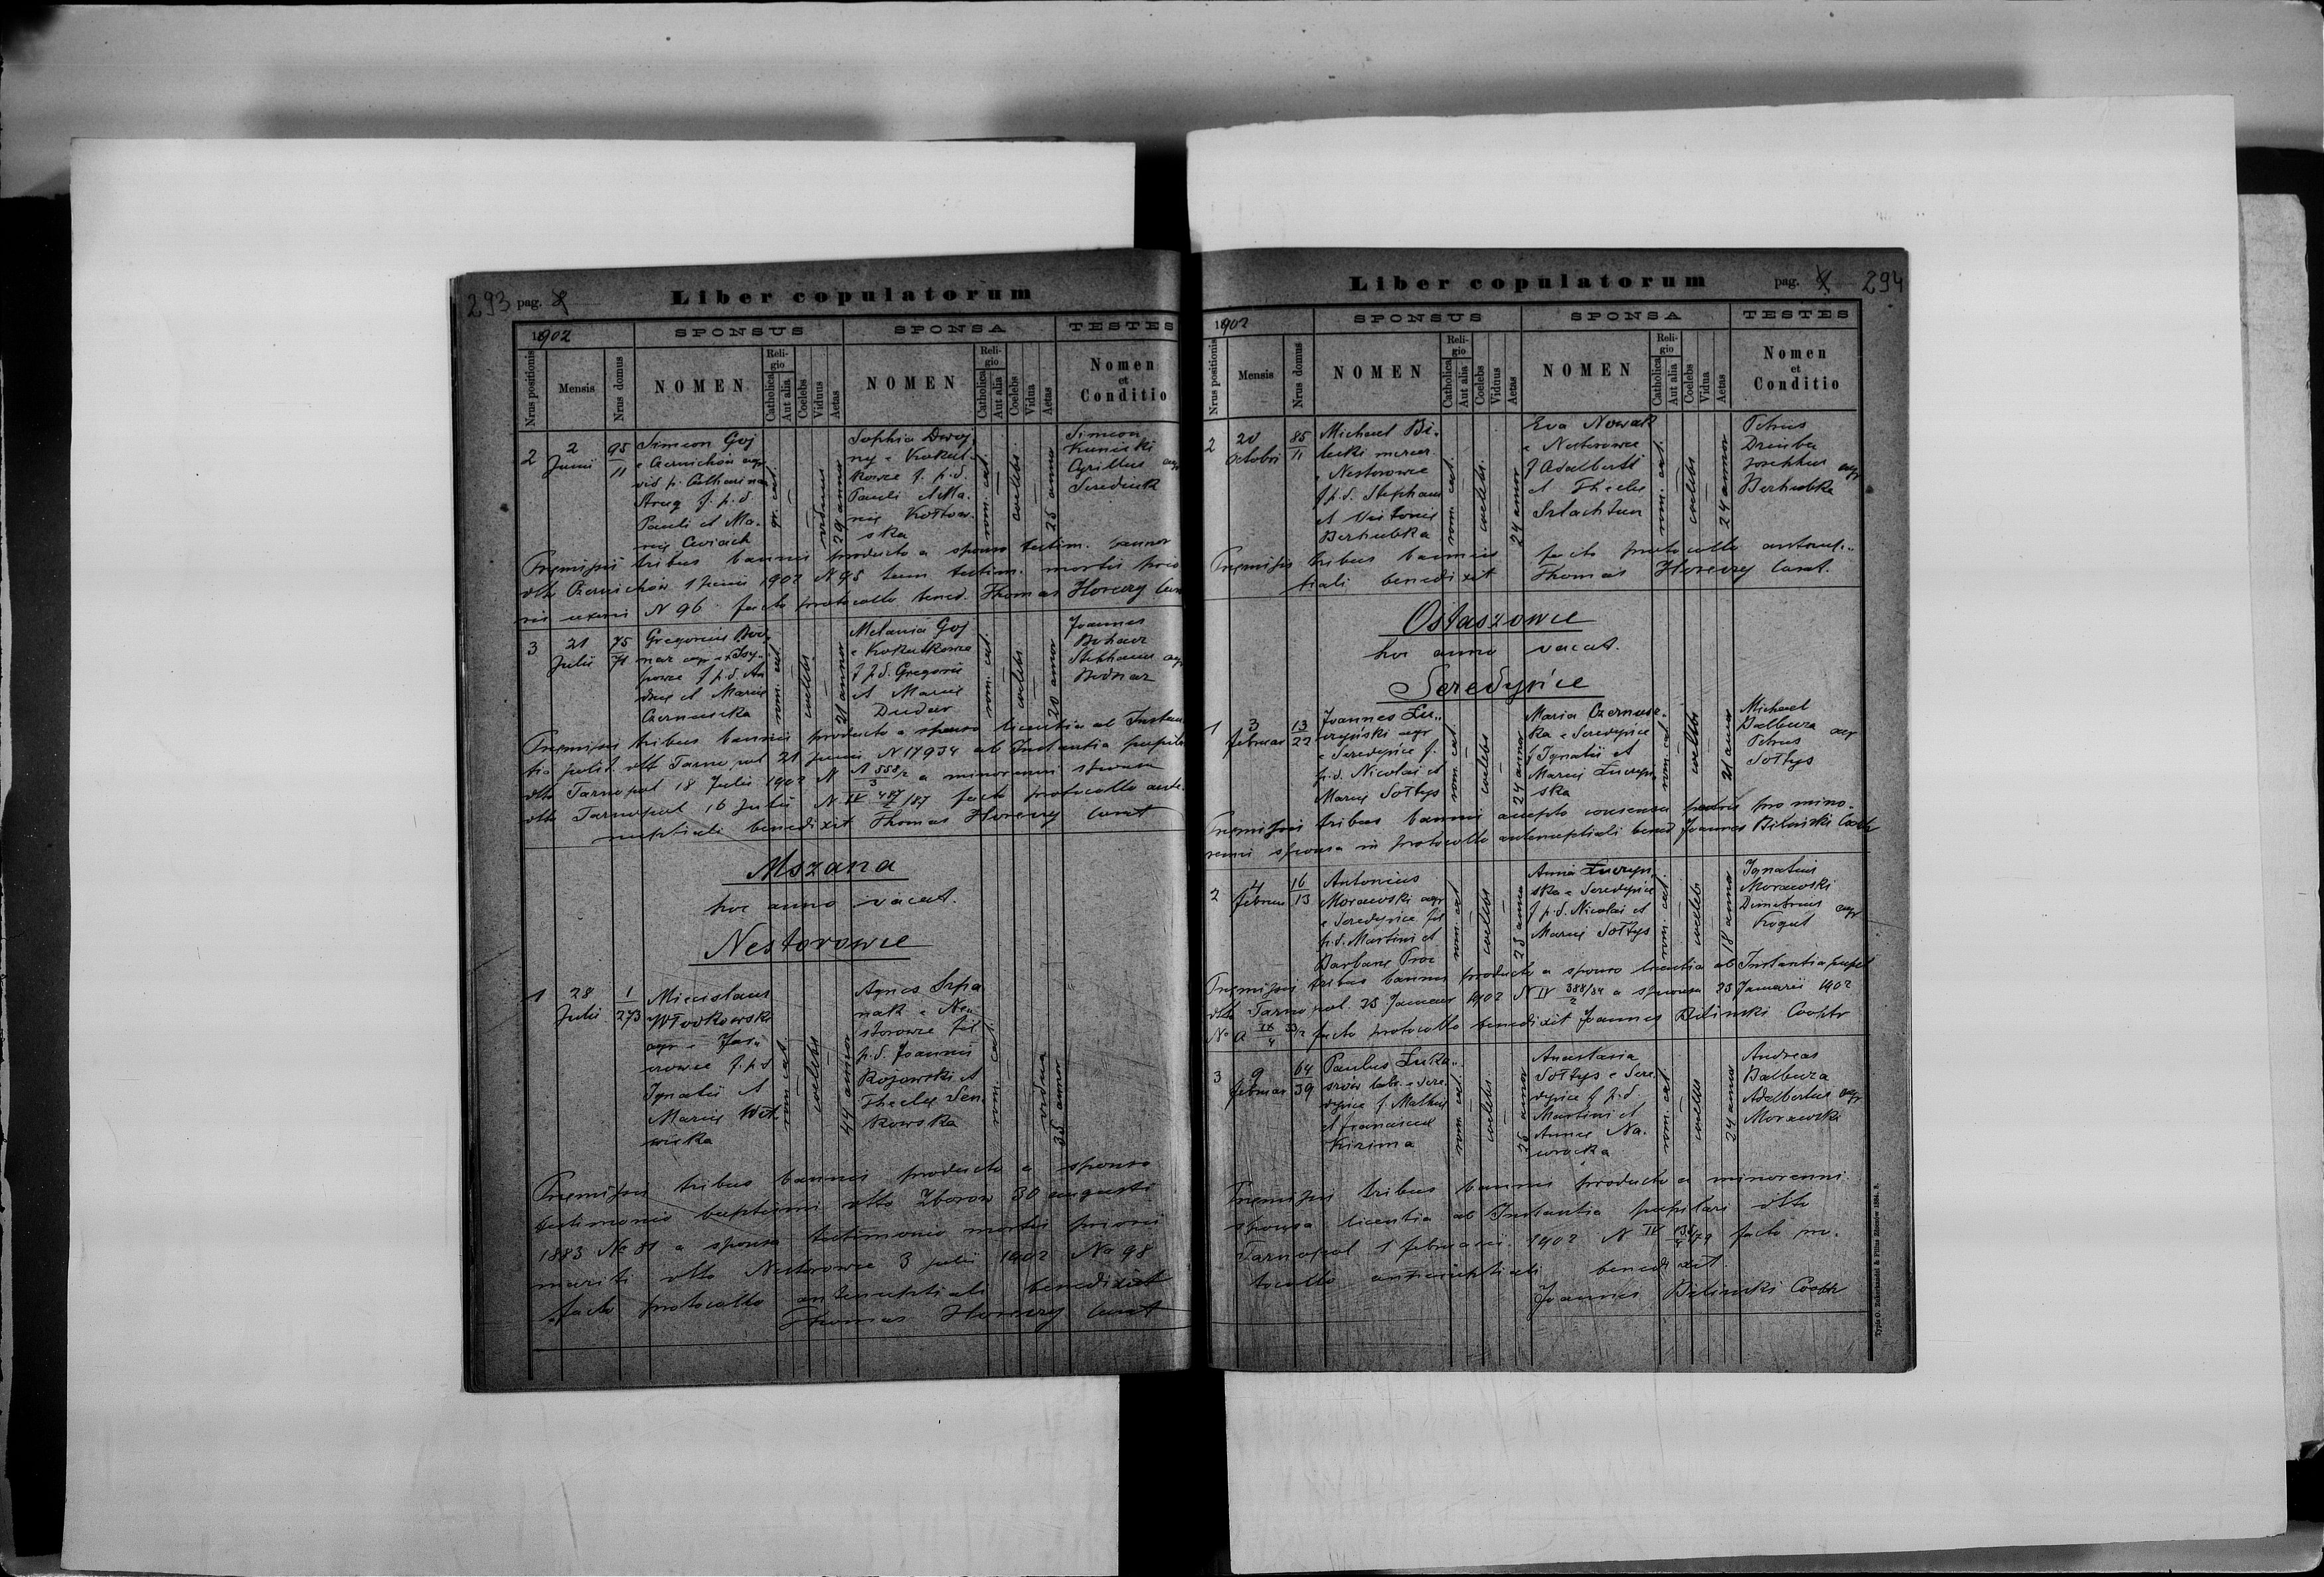 293 pag.
Liber copulatorum
1902
SPONSUS
SPONSA
TESTES
Nrus positionis
Mensis
Nrus domus
NOMEN
Religio
Catholica
Aut alia
Coelebs
Viduus
Aetas
NOMEN
Religio
Catholica
Aut alia
Coelebs
Vidua
Aetas
Nomen
et
Conditio
2
2
Junii
95
11
Simeon Goj
e Czernichów agr
vid p. Catharina
Strug f. p. d.
Pauli et Ma-
rię Cwiach
gr. cat.
viduus
29 annor
Sophia Dwoj
ny e Kokut-
kowce f. p. d.
Pauli et Ma-
rię Kottow-
ska
rom. cat.
coelebs
25 annor
Simeon
Kunicki
Cyrillus agr
Serediuk
Premissis tribus bannis producto a sponso testim. bannor
dtto Czernichów 1 Junii 1902 N 95 tum testim. mortis prio
ris uxoris N 96 facto protocollo bened. Thomas Horeczy Curat
3
21
Julii
75
71
Gregorius Bod
nar agr e Isy-
powce f. p. d. An
dreę et Marię
Czernuszka
rom. cat
coelebs
21 annor
Melania Goj
e Kokutkowce
f p. d. Gregorii
et Marię
Dudar
rom. cat.
coelebs
20 annor
Joannes
Bohacz
Stephanus agr
Bodnar
Premissis tribus bannis producto a sponso licentia ab Instan
tia polit. dtto Tarnopol 21 Junii N 17934 ab Instantia pupil
dtto Tarnopol 18 Julii 1902 N a minorenni sponsa
dtto Tarnopol 16 Julii N IV 487/187 facto protocollo ante-
nuptiali benedixit Thomas Horeczy Curat
Mszana
hoc anno vacat.
Nestorowce
1
28
Julii
1
273
Miecislaus
Wlodkowski
agr e Jar-
Ignatii et
Marię Wit-
wicka
rom. cat.
coelebs
44 annor
Agnes Szpa
nak e Ne-
storowce fil
p. d. Joannis
Rojowski et
Theclę Sen
kowska
rom. cat.
vidua
35 annor
Premissis tribus bannis producto a sponso
testimonio baptismi dtto Zborow 30 augusti
1883 No 81 a sponsa testimonio mortis prioris
mariti dtto Nestorowce 3 Julii 1902 No 98
facto protocollo antenuptiali benedixit
Thomas Horeczy Curat
Liber copulatorum
pag. 294
1902
SPONSUS
SPONSA
TESTES
Nrus positionis
Mensis
Nrus domus
NOMEN
Religio
Catholica
Aut alia
Coelebs
Viduus
Aetas
NOMEN
Religio
Catholica
Aut alia
Coelebs
Vidua
Aetas
Nomen
et
Conditio
2
20
Octobri
85
11
Michael Bi-
lecki mercer
e Nestorowce
f p. d. Stephani
et Victorię
Berhubka
rom. cat.
coelebs.
24 annor
Eva Nowak
e Nestorowce
f Adalberti
et Theclę
Szlachtun
rom. cat.
coelebs
24 annor
Petrus
Dziuba
Josephus agr
Berhubka
Premissis tribus bannis facto protocollo antenup-
tiali benedixit Thomas Horeczy Curat.
Ostaszowce
hoc anno vacat.
Seredyńce
1
3
februar
13
22
Joannes Łu-
czyński agr
e Seredyńce f.
p. d. Nicolai et
Marię Sołtys
rom. cat.
coelebs
24 annor
Maria Czernusz-
ka e Seredyńce
f Ignatii et
Marię Łuczyń
ska
rom. cat.
coelebs
21 annor
Michael
Balbuza
Petrus agr
Sołtys
Premissis tribus bannis accepto consensu patris pro mino-
renni sponsa in protocollo antenuptiali bened Joannes Biliński Cooptr
2
4
februar
16
13
Antonius
Morawski agr
e Seredyńce fil
p. d. Martini et
Barbarę Proc
rom. cat
coelebs
23 annor
Anna Łuczyń
ska e Seredyńce
f p. d. Nicolai et
Marię Sołtys
rom. cat.
coelebs
18 annor
Ignatius
Morawski
Demetrius agr
Kogut
Premissis tribus bannis producto a sponso licentia ab Instantia pupil
dtto Tarnopol 25 Januar 1902 N IV 388/84 a sponsa 25 Januarii 1902
facto protocollo benedixit Joannes Biliński Cooptr
3
9
februar
64
39
Paulus Łuka-
szów lab. e Sere-
dyńce f. Mathię
et Franciscę
Kizima
rom. cat
coelebs
25 annor
Anastasia
Sołtys e Sere
dyńce f p. d.
Martini et
Annę Na-
wrocka
rom. cat
coelebs
24 annor
Andreas
Balbuza
Adalbertus agr
Morawski
Premissis tribus bannis producto a minorenni
sponsa licentia ab Instantia pupilari dtto
Tarnopol 1 februarii 1902 N IV facto pro-
tocollo antenuptiali benedixit
Joannes Biliński Cooptr